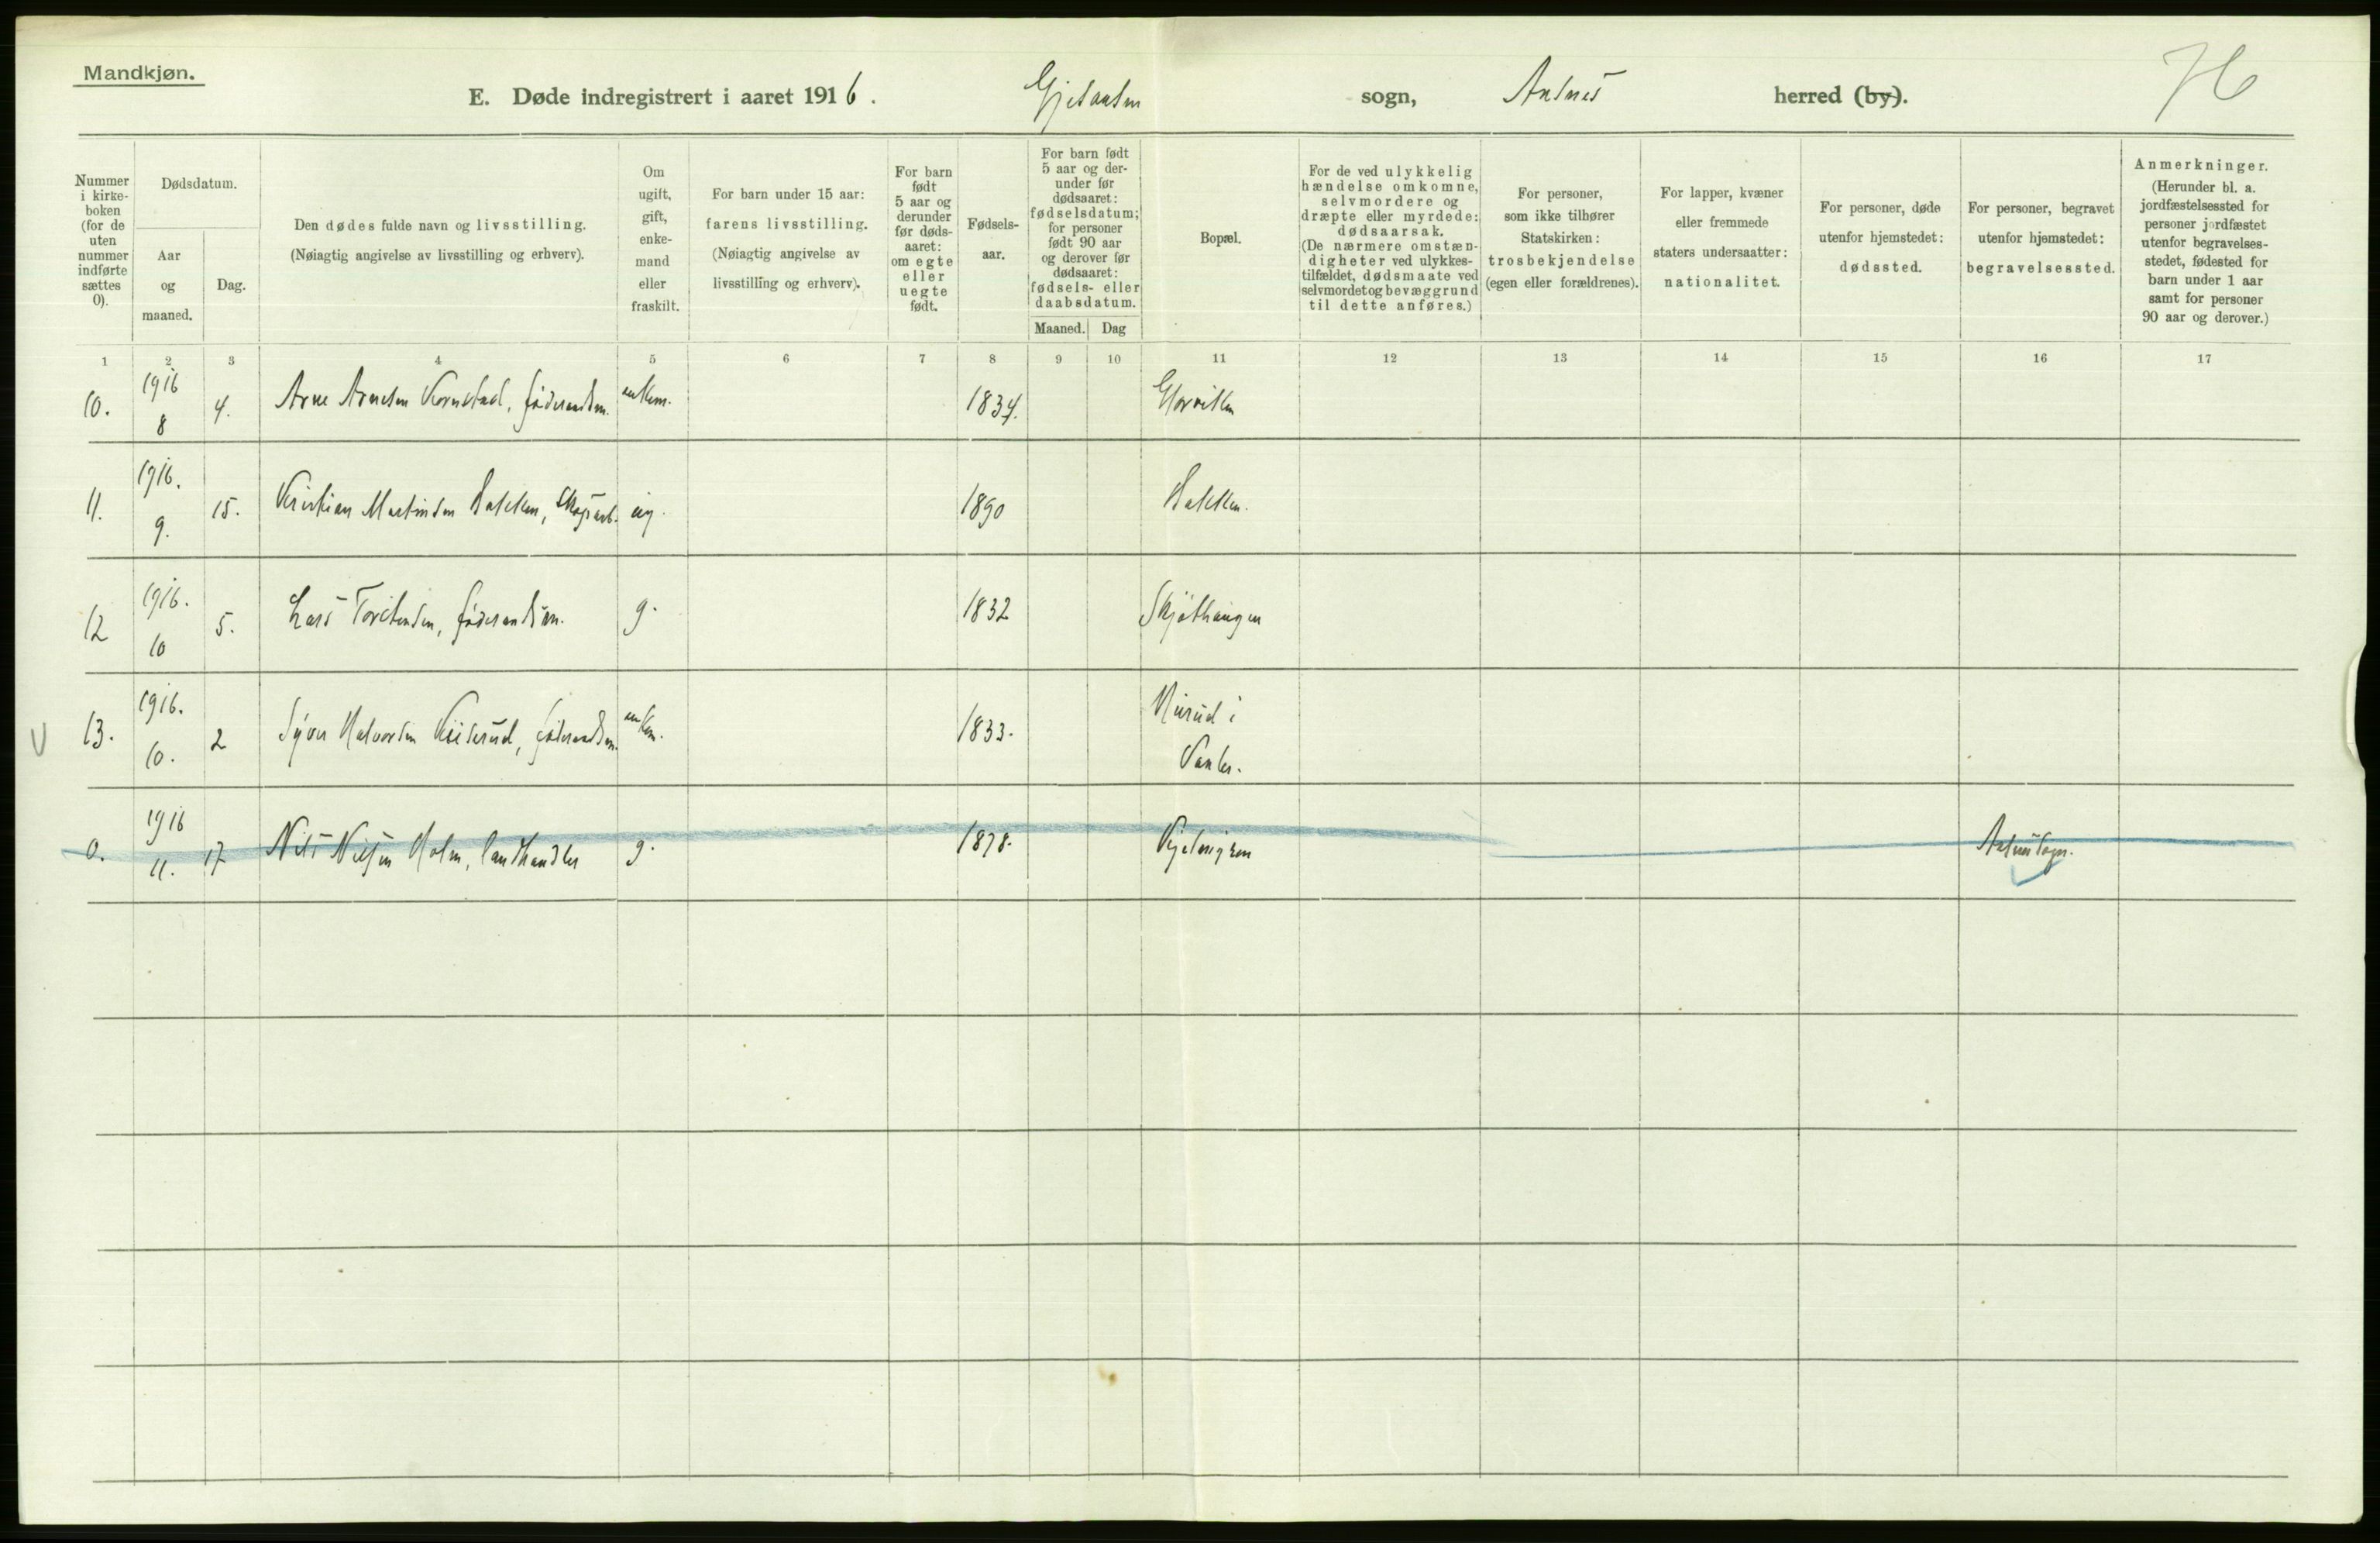 Mandkjøn.
E. Døde indregistrert i aaret 1916. Gjesaasen sogn, Aasnes herred (by).
Nummer i kirke-boken (for de uten nummer indførte sættes 0).
Dødsdatum.
Aar og maaned.
Dag.
Den dødes fulde navn og livsstilling.
(Nøiagtig angivelse av livsstilling og erhverv).
Om ugift, gift, enke-mand eller fraskilt.
For barn under 15 aar: farens livsstilling.
(Nøiagtig angivelse av livsstilling og erhverv).
For barn født 5 aar og derunder før døds-aaret: om egte eller uegte født.
Fødsels-aar.
For barn født 5 aar og der-under før dødsaaret: fødselsdatum; for personer født 90 aar og derover før dødsaaret: fødsels- eller daabsdatum.
Maaned. Dag
Bopæl.
For de ved ulykkelig hændelse omkomne, selvmordere og dræpte eller myrdede: dødsaarsak.
(De nærmere omstæn-digheter ved ulykkes-tilfældet, dødsmaate ved selvmordet og bevæggrund til dette anføres.)
For personer, som ikke tilhører Statskirken: trosbekjendelse (egen eller forældrenes).
For lapper, kvæner eller fremmede staters undersaatter: nationalitet.
For personer, døde utenfor hjemstedet: dødssted.
For personer, begravet utenfor hjemstedet: begravelsessted.
Anmerkninger.
(Herunder bl. a. jordfæstelsessted for personer jordfæstet utenfor begravelses-stedet, fødested for barn under 1 aar samt for personer 90 aar og derover.)
1 2 3 4 5 6 7 8 9 10 11 12 13 14 15 16 17
10. 1916 8 4. Arne Arnesen Kornstad, føderaadsm. enkem. 1834.
11. 1916. 9. 15. Kristian Martinsen Bakken, Skogsarb. ug. 1890 Bakken.
12 1916. 10 5. Lars Torstensen, føderaadsm. g. 1832 Skjøthaugen
13. 1916. 10. 2 Syver Halvorsen føderaadsm. enkem. 1833. i Vaaler.
0. 1916 11. 17 Nils Nilsen Holm, landhandler g. 1878. Aasnes sogn.